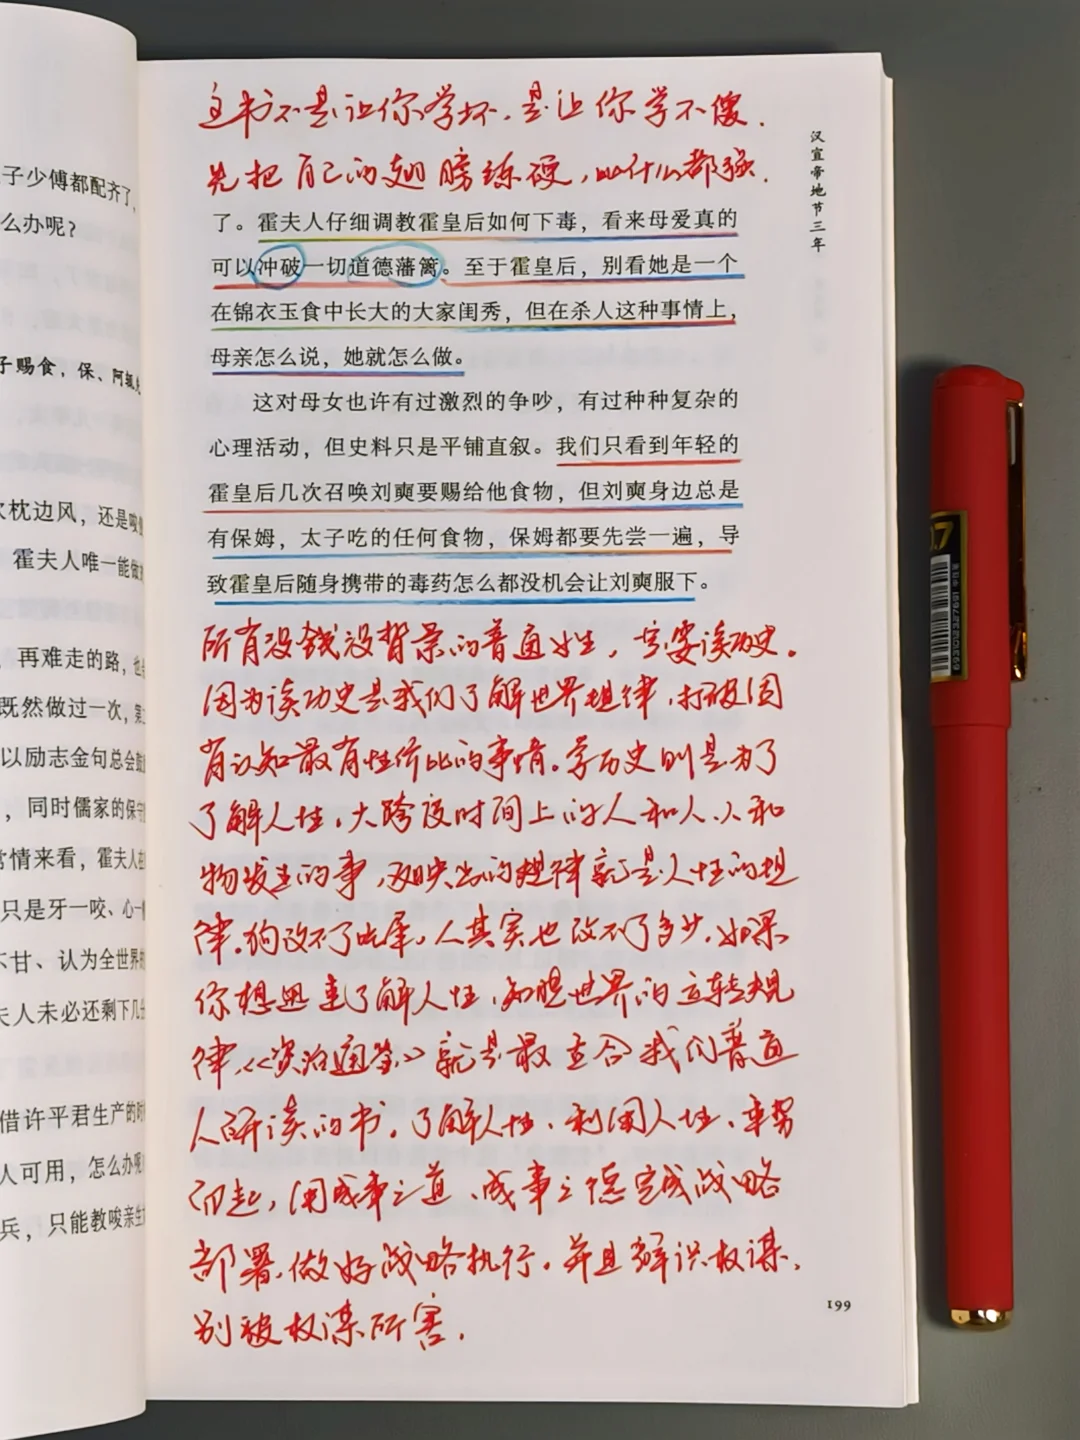 子少傅都配齐了，
么办呢？
子赐食，保、阿辄
枕边风，还是唆
霍夫人唯一能做
再难走的路，也
既然做过一次，第
以励志金句总会
，同时儒家的保守
常情来看，霍夫人
只是牙一咬、心一
不甘、认为全世界
夫人未必还剩下几
借许平君生产的时
人可用，怎么办呢
兵，只能教唆亲生
这书不是让你学坏，是让你学不傻.
先把自己的翅膀练硬，比什么都强.
汉宣帝地节三年
了。霍夫人仔细调教霍皇后如何下毒，看来母爱真的
可以冲破一切道德藩篱。至于霍皇后，别看她是一个
在锦衣玉食中长大的大家闺秀，但在杀人这种事情上，
母亲怎么说，她就怎么做。
这对母女也许有过激烈的争吵，有过种种复杂的
心理活动，但史料只是平铺直叙。我们只看到年轻的
霍皇后几次召唤刘奭要赐给他食物，但刘奭身边总是
有保姆，太子吃的任何食物，保姆都要先尝一遍，导
致霍皇后随身携带的毒药怎么都没机会让刘奭服下。
所有没钱没背景的普通女生，一定要读历史。
因为读历史是我们了解世界规律，打破固
有认知最有性价比的事情。学历史则是为了
了解人性，大跨度时间上的人和人、人和
物发生的事，反映出的规律就是人性的规
律。狗改不了吃屎，人其实也改不了多少，如果
你想迅速了解人性，知晓世界的运转规
律，《资治通鉴》就是最适合我们普通
人研读的书。了解人性、利用人性、乘势
而起，用成事之道、成事之德完成战略
部署，做好战略执行。并且辨识权谋，
别被权谋所害.
199
0.7